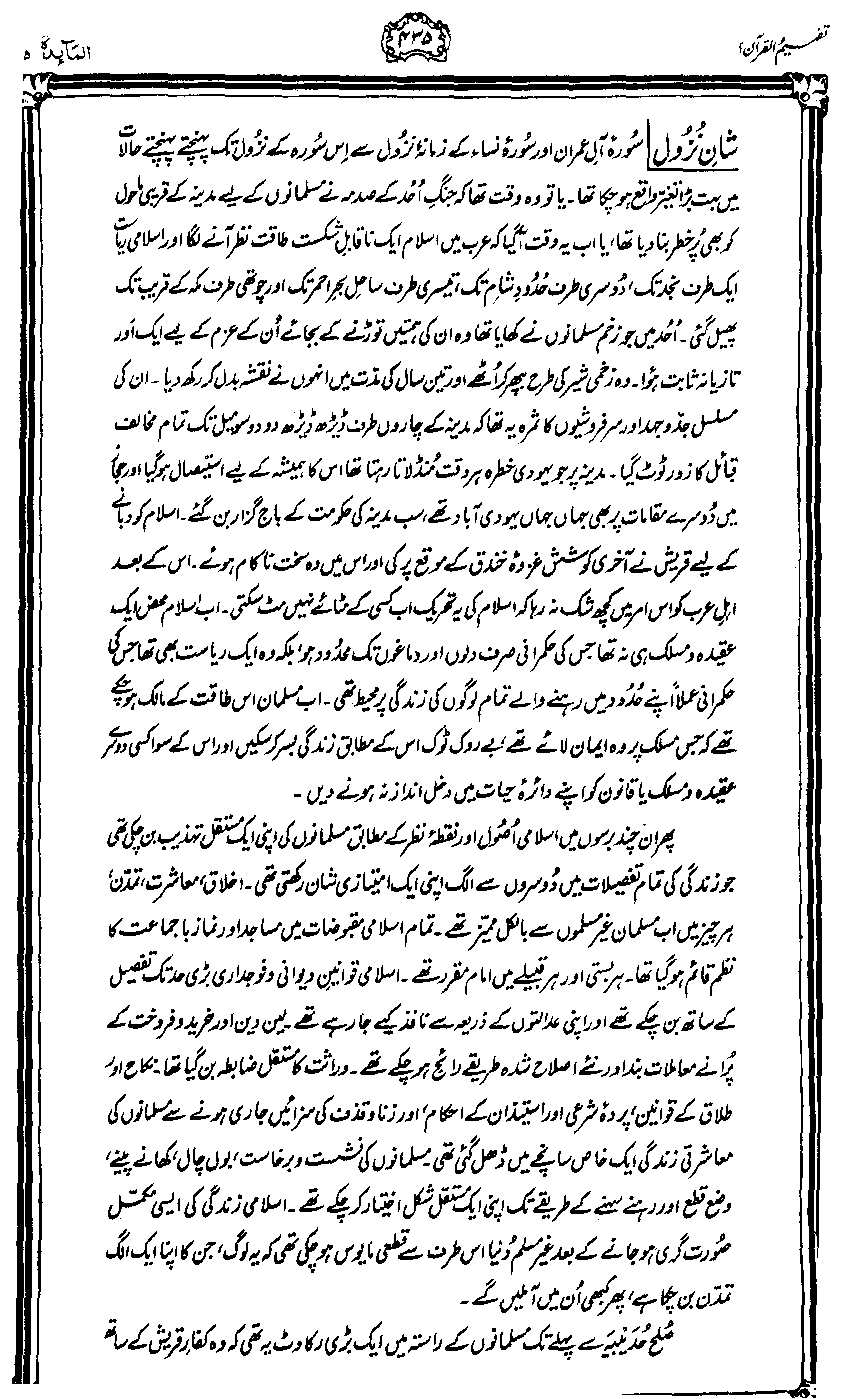 تفہیم القرآن ۱
۴۳۵
المآئدۃ ۵
شانِ نزُول سُورۂ آلِ عمران اور سُورۂ نساء کے زمانۂ نزُول سے اِس سُورہ کے نزُول تک پہنچتے پہنچتے حالات
میں بہت بڑا تغیّر واقع ہو چکا تھا۔ یا تو وہ وقت تھا کہ جنگِ اُحُد کے صدمہ نے مسلمانوں کے لیے مدینہ کے قریبی ماحول
کو بھی پُرخطر بنا دیا تھا، یا اب یہ وقت آگیا کہ عرب میں اسلام ایک ناقابلِ شکست طاقت نظر آنے لگا اور اسلامی ریاست
ایک طرف نجد تک، دُوسری طرف حُدُودِ شام تک، تیسری طرف ساحلِ بحرِ احمر تک اور چوتھی طرف مکہ کے قریب تک
پھیل گئی۔ اُحُد میں جو زخم مسلمانوں نے کھایا تھا وہ ان کی ہمتیں توڑنے کے بجائے اُن کے عزم کے لیے ایک اَور
تازیانہ ثابت ہوُا۔ وہ زخمی شیر کی طرح بپھر کر اُٹھے اور تین سال کی مدّت میں انہوں نے نقشہ بدل کر رکھ دیا۔ ان کی
مسلسل جدّوجہد اور سرفروشیوں کا ثمرہ یہ تھا کہ مدینہ کے چاروں طرف ڈیڑھ ڈیڑھ دو دو سومیل تک تمام مخالف
قبائل کا زور ٹوٹ گیا۔ مدینہ پر جو یہودی خطرہ ہر وقت مُنڈلاتا رہتا تھا اس کا ہمیشہ کے لیے استیصال ہوگیا اور حجاز
میں دُوسرے مقامات پر بھی جہاں جہاں یہودی آباد تھے، سب مدینہ کی حکومت کے باج گزار بن گئے۔ اسلام کو دبانے
کے لیے قریش نے آخری کوشش غزوۂ خندق کے موقع پر کی اور اس میں وہ سخت ناکام ہوئے۔ اس کے بعد
اہلِ عرب کو اس امر میں کچھ شک نہ رہا کہ اسلام کی یہ تحریک اب کسی کے مٹائے نہیں مٹ سکتی۔ اب اسلام محض ایک
عقیدہ و مسلک ہی نہ تھا جس کی حکمرانی صرف دلوں اور دماغوں تک محدُود ہو، بلکہ وہ ایک ریاست بھی تھا جس کی
حکمرانی عملاً اپنے حُدُود میں رہنے والے تمام لوگوں کی زندگی پر محیط تھی۔ اب مسلمان اس طاقت کے مالک ہو چکے
تھے کہ جس مسلک پر وہ ایمان لائے تھے، بے روک ٹوک اس کے مطابق زندگی بسر کرسکیں اور اس کے سوا کسی دوسرے
عقیدہ و مسلک یا قانون کو اپنے دائرۂ حیات میں دخل انداز نہ ہونے دیں۔
پھر ان چند برسوں میں اسلامی اُصُول اور نقطۂ نظر کے مطابق مسلمانوں کی اپنی ایک مستقل تہذیب بن چکی تھی
جو زندگی کی تمام تفصیلات میں دُوسروں سے الگ اپنی ایک امتیازی شان رکھتی تھی۔ اخلاق، معاشرت، تمدّن،
ہر چیز میں اب مسلمان غیر مسلموں سے بالکل ممیّز تھے۔ تمام اسلامی مقبوضات میں مساجد اور نماز باجماعت کا
نظم قائم ہوگیا تھا۔ ہر بستی اور ہر قبیلے میں امام مقرر تھے۔ اسلامی قوانین دیوانی و فوجداری بڑی حد تک تفصیل
کے ساتھ بن چکے تھے اور اپنی عدالتوں کے ذریعہ سے نافذ کیے جارہے تھے۔ لین دین اور خرید و فروخت کے
پُرانے معاملات بند اور نئے اصلاح شدہ طریقے رائج ہو چکے تھے۔ وراثت کا مستقل ضابطہ بن گیا تھا۔ نکاح اور
طلاق کے قوانین، پردۂ شرعی اور استیذان کے احکام، اور زنا و قذف کی سزائیں جاری ہونے سے مسلمانوں کی
معاشرتی زندگی ایک خاص سانچے میں ڈھل گئی تھی۔ مسلمانوں کی نشست و برخاست، بول چال، کھانے پینے،
وضع قطع اور رہنے سہنے کے طریقے تک اپنی ایک مستقل شکل اختیار کرچکے تھے۔ اسلامی زندگی کی ایسی مکمّل
صُورت گری ہو جانے کے بعد غیر مسلم دُنیا اس طرف سے قطعی مایوس ہوچکی تھی کہ یہ لوگ، جن کا اپنا ایک الگ
تمدّن بن چکا ہے، پھر کبھی اُن میں آملیں گے۔
صُلحِ حُدَیبیَہ سے پہلے تک مسلمانوں کے راستہ میں ایک بڑی رکاوٹ یہ تھی کہ وہ کفارِ قریش کے ساتھ